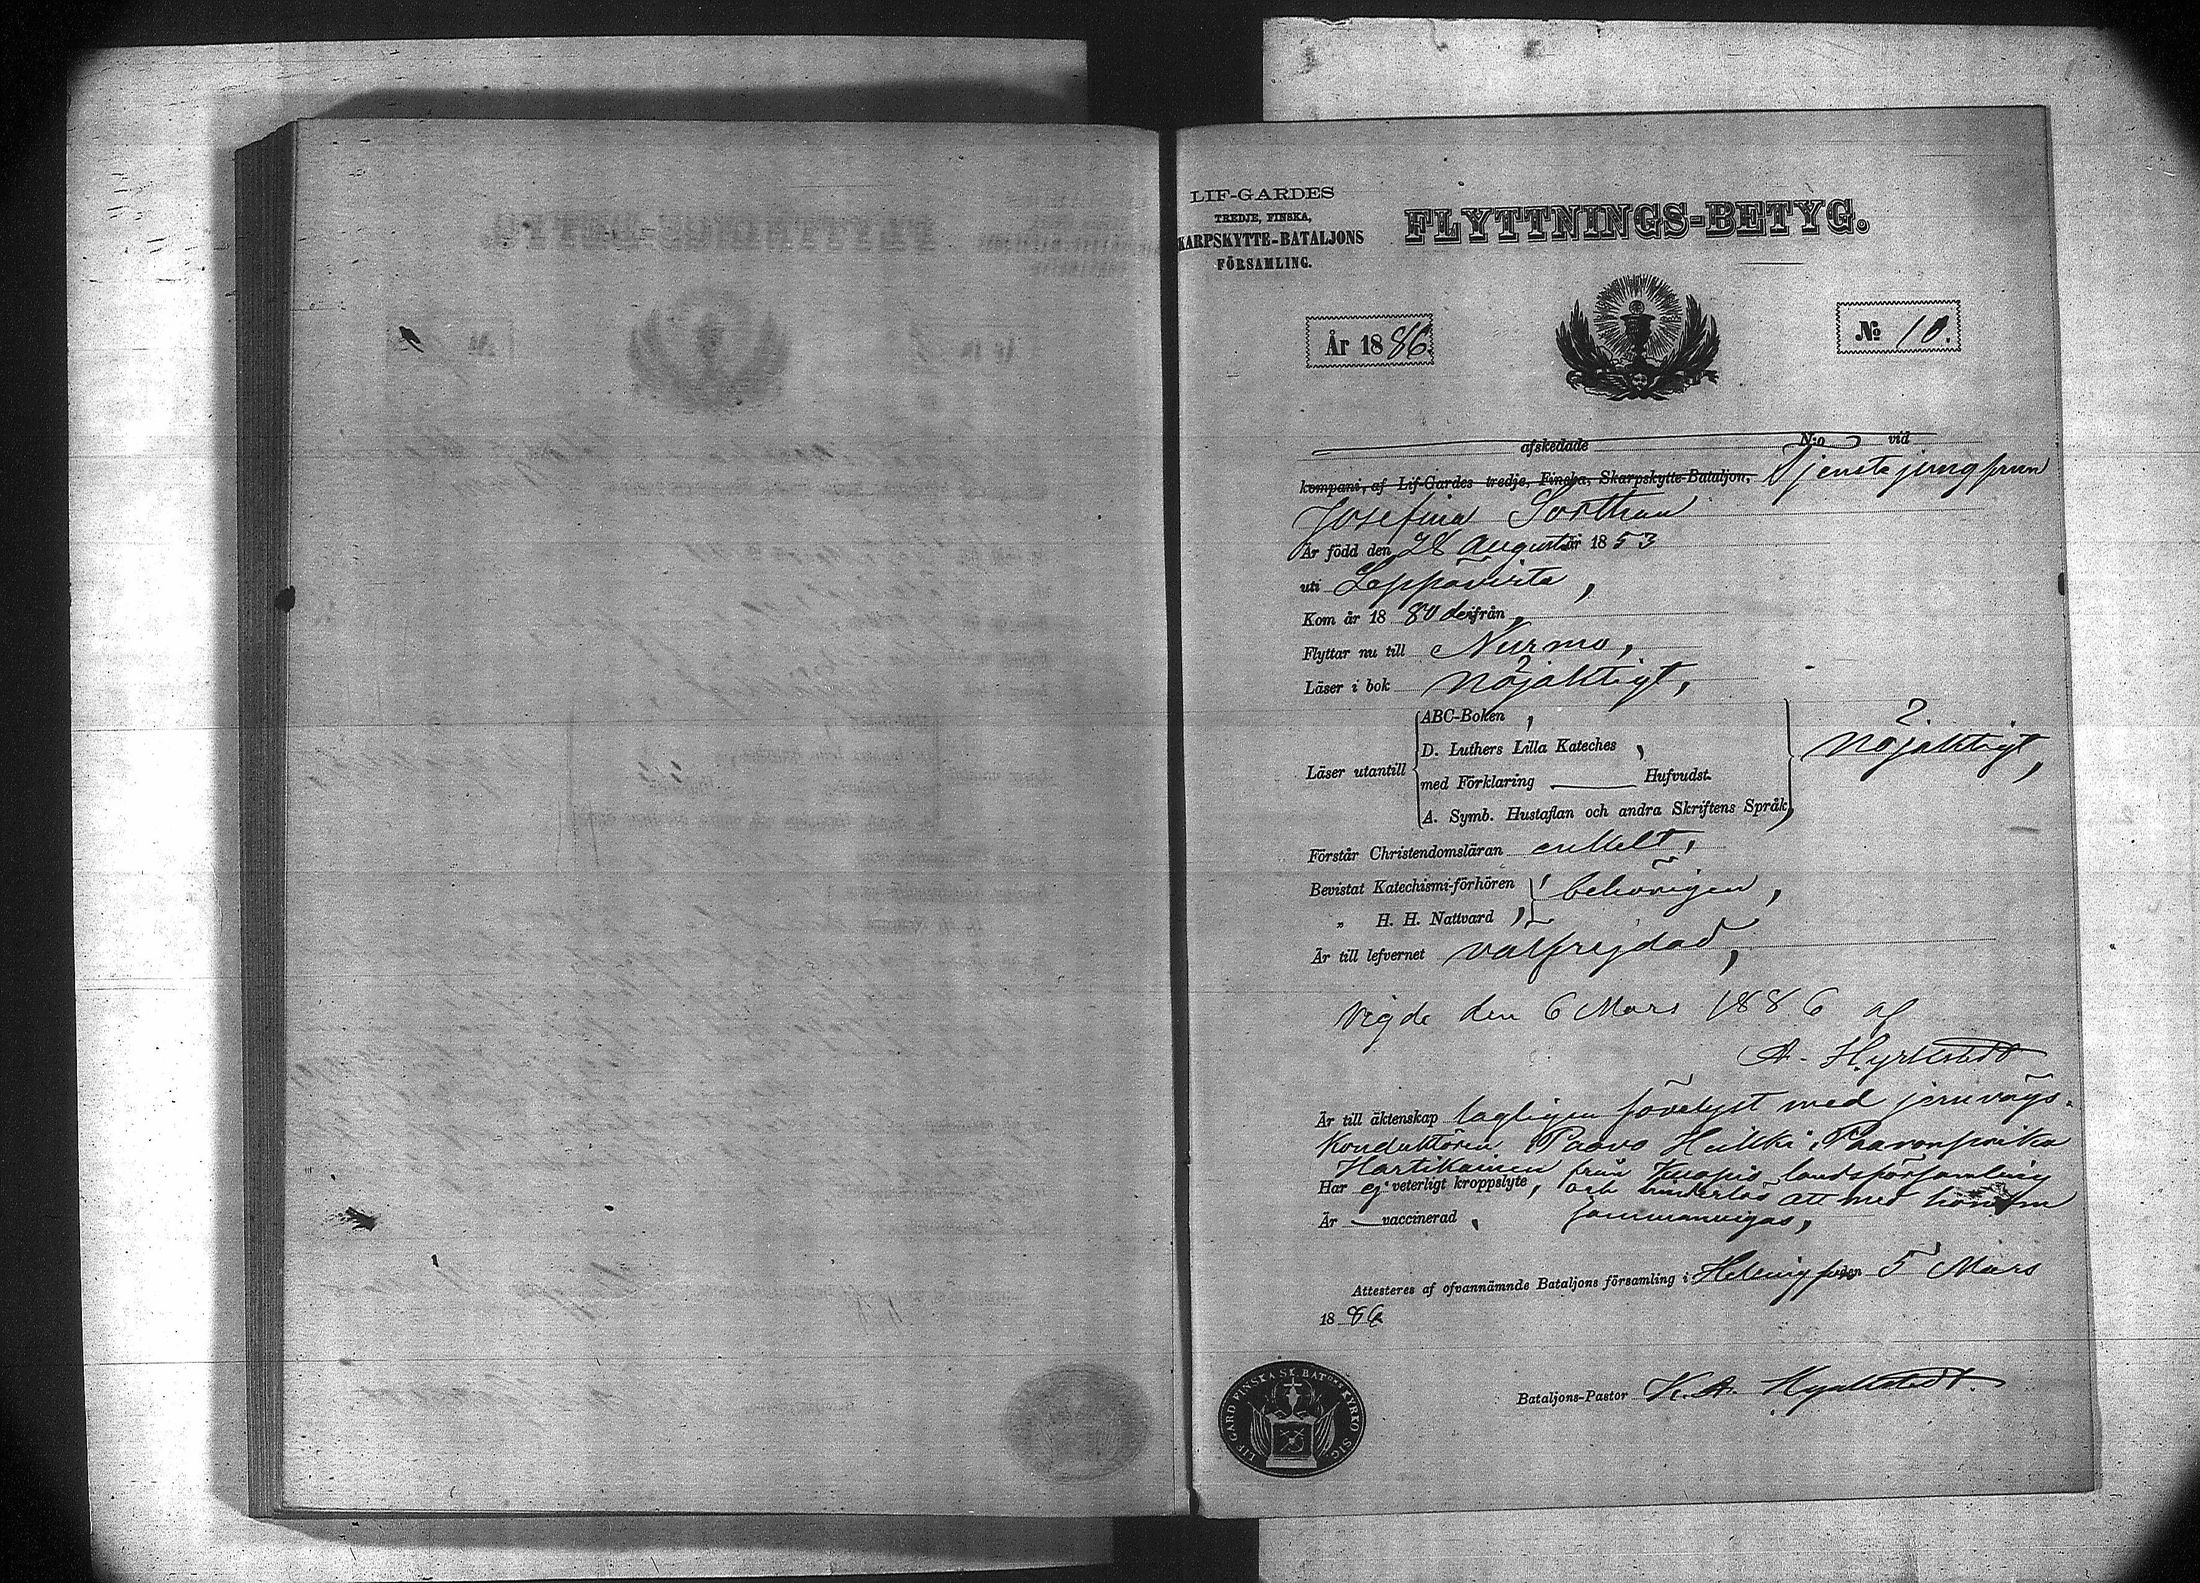 LIF-GARDES
TREDJE, FINSKA,
KARPSKYTTE-BATALJONS
FÖRSAMLING.
FLYTTNINGS-BETYG.
År 1886.
No 10.
afskedade N:o vid
kompani, af Lif-Gardes tredje, Finska, Skarpskytte-Bataljon, Tjenstejungfrun
Josefina Sorthan
Är född den 28 Augusti år 1853
uti Leppävirta,
Kom år 1880 derifrån,
Flyttar nu till Nurmo,
Läser i bok nöjaktigt,
ABC-Boken,
D. Luthers Lilla Kateches,
Läser utantill
med Förklaring Hufvudst.
A. Symb. Hustaflan och andra Skriftens Språk,
nöjaktigt,
Förstår Christendomsläran enkelt,
Bevistat Katechismi-förhören, behörigen,
„ H. H. Nattvard,
Är till lefvernet välfrejdad,
Vigde den 6 Mars 1886 af
A. Hyrkstedt
Är till äktenskap lagligen förelyst med jernvägs-
Konduktören Paavo Heikki Paavonpoika
Hartikainen från Kuopio landsförsamling
Har ej veterligt kroppslyte, och hinderlös att med honom
Är vaccinerad, sammanvigas,
Attesteres af ofvannämnde Bataljons församling i Helsingfors den 5 Mars
1886
Bataljons-Pastor K. A. Hyrkstedt.
LIF-GARD FINSKA SK. BAT. KYRKO SIG.